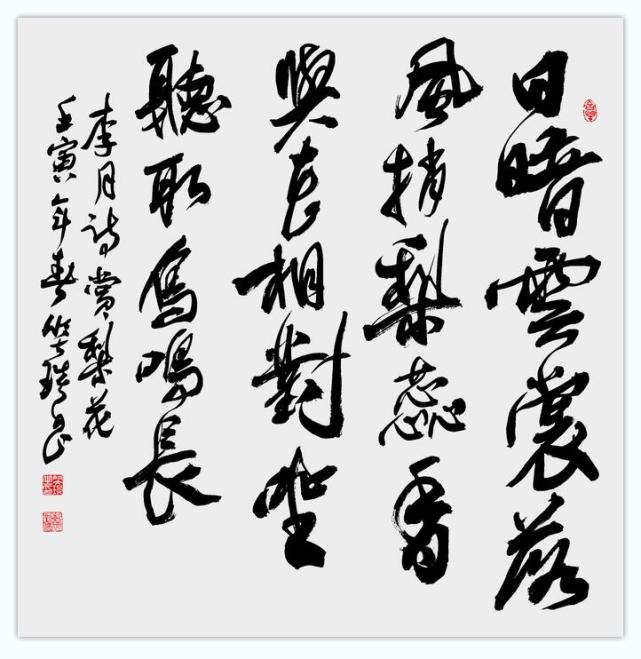 日暗雲裳落
風捎梨蕊香
與君相對坐
聽取鳥鳴長
李月詩賞梨花
壬寅年春竺